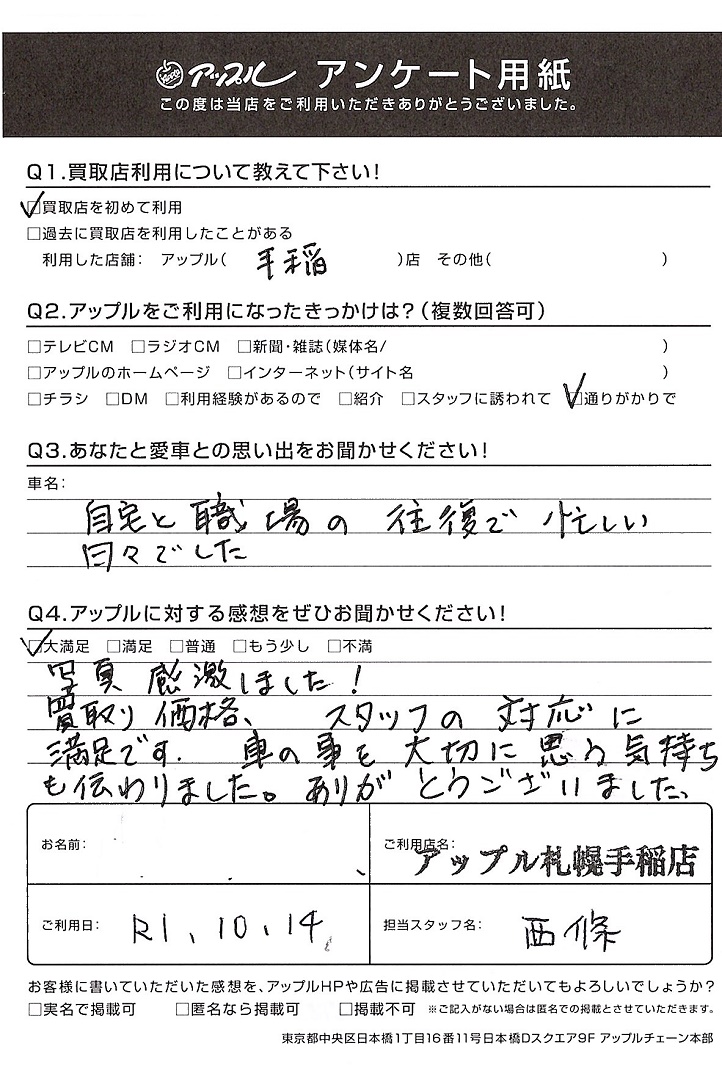 アップル アンケート用紙
この度は当店をご利用いただきありがとうございました。
Q1.買取店利用について教えて下さい!
☑買取店を初めて利用
□過去に買取店を利用したことがある
利用した店舗: アップル( 手稲 )店 その他( )
Q2.アップルをご利用になったきっかけは?(複数回答可)
□テレビCM □ラジオCM □新聞・雑誌(媒体名/ )
□アップルのホームページ □インターネット(サイト名 )
□チラシ □DM □利用経験があるので □紹介 □スタッフに誘われて ☑通りがかりで
Q3.あなたと愛車との思い出をお聞かせください!
車名:
自宅と職場の往復で忙しい
日々でした
Q4.アップルに対する感想をぜひお聞かせください!
☑大満足 □満足 □普通 □もう少し □不満
写真感激しました!
買取り価格、スタッフの対応に
満足です。車の事を大切に思う気持ち
も伝わりました。ありがとうございました。
お名前:
ご利用店名:
アップル札幌手稲店
ご利用日: R1、10、14
担当スタッフ名: 西條
お客様に書いていただいた感想を、アップルHPや広告に掲載させていただいてもよろしいでしょうか?
□実名で掲載可 □匿名なら掲載可 □掲載不可 ※ご記入がない場合は匿名での掲載とさせていただきます。
東京都中央区日本橋1丁目16番11号日本橋Dスクエア9F アップルチェーン本部